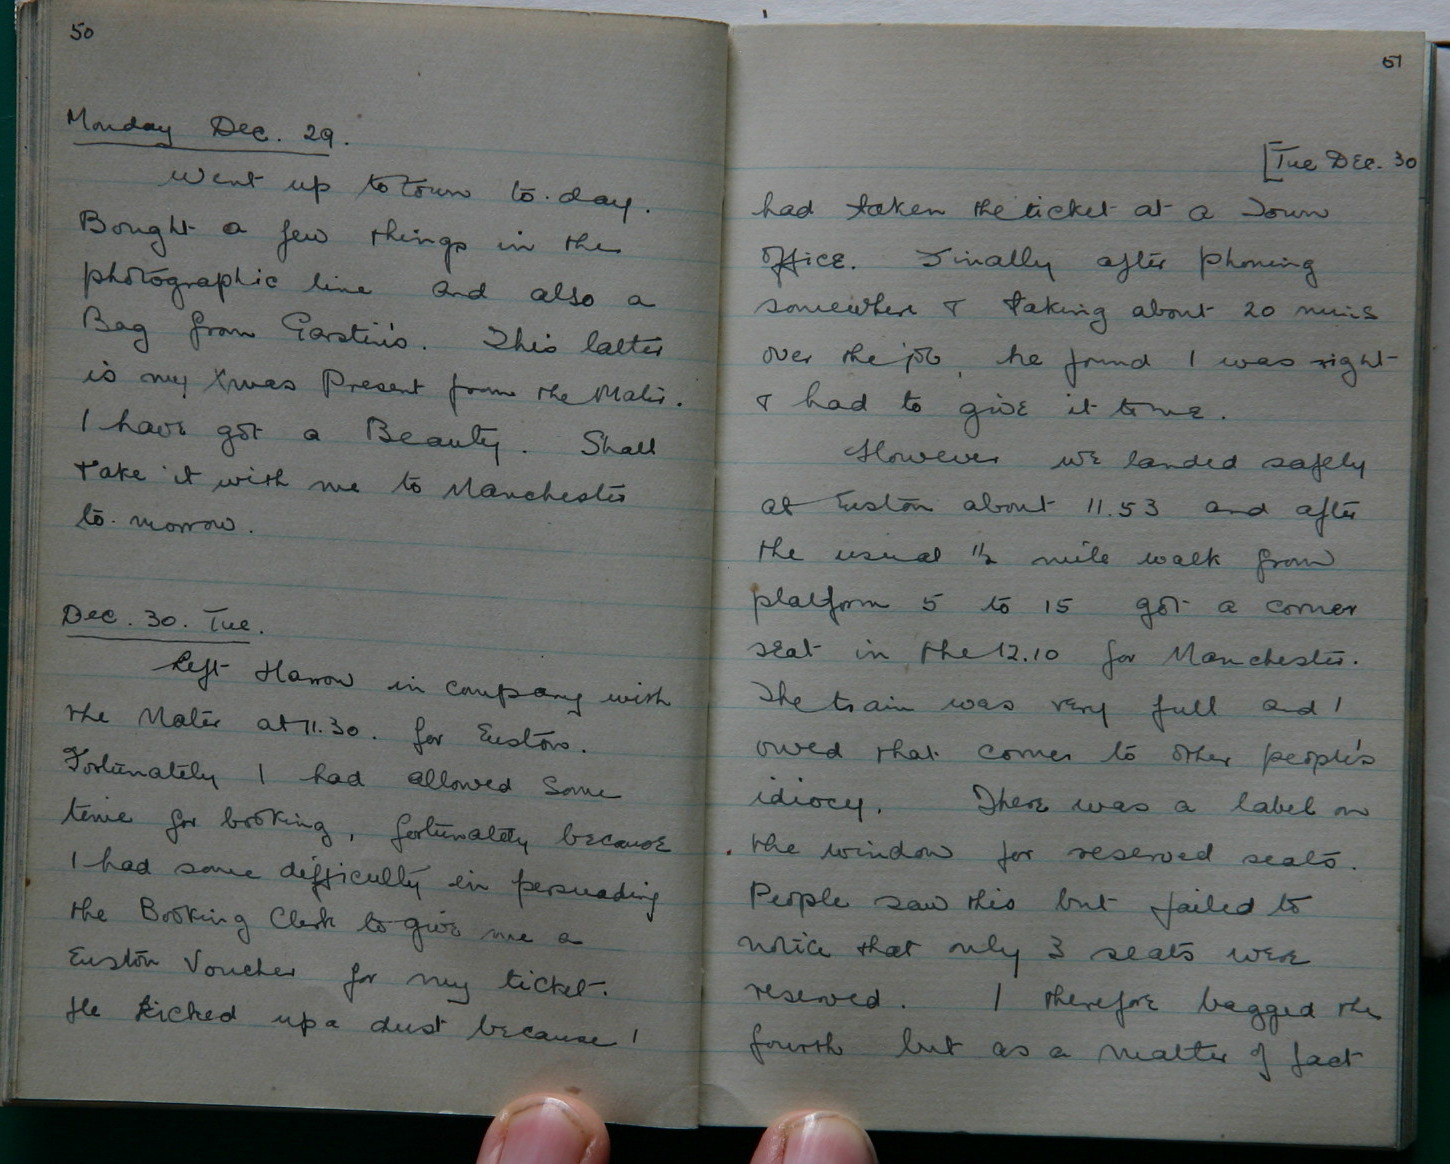 50
Monday Dec. 29.
Went up to Town to-day.
Bought a few things in the
photographic line and also a
Bag from Garstin's. This latter
is my Xmas Present from the Mater.
I have got a Beauty. Shall
take it with me to Manchester
to-morrow.
Dec. 30. Tue.
Left Harrow in company with
the Mater at 11.30. for Euston.
Fortunately I had allowed some
time for booking, fortunately because
I had some difficulty in persuading
the Booking Clerk to give me a
Euston Voucher for my ticket.
He kicked up a dust because I
51
[Tue Dec. 30
had taken the ticket at a Town
Office. Finally after phoning
somewhere & taking about 20 mins
over the job, he found I was right
& had to give it to me.
However we landed safely
at Euston about 11.53 and after
the usual ½ mile walk from
platform 5 to 15 got a corner
seat in the 12.10 for Manchester.
The train was very full and I
owed that corner to other people's
idiocy. There was a label on
the window for reserved seats.
People saw this but failed to
notice that only 3 seats were
reserved. I therefore bagged the
fourth but as a matter of fact